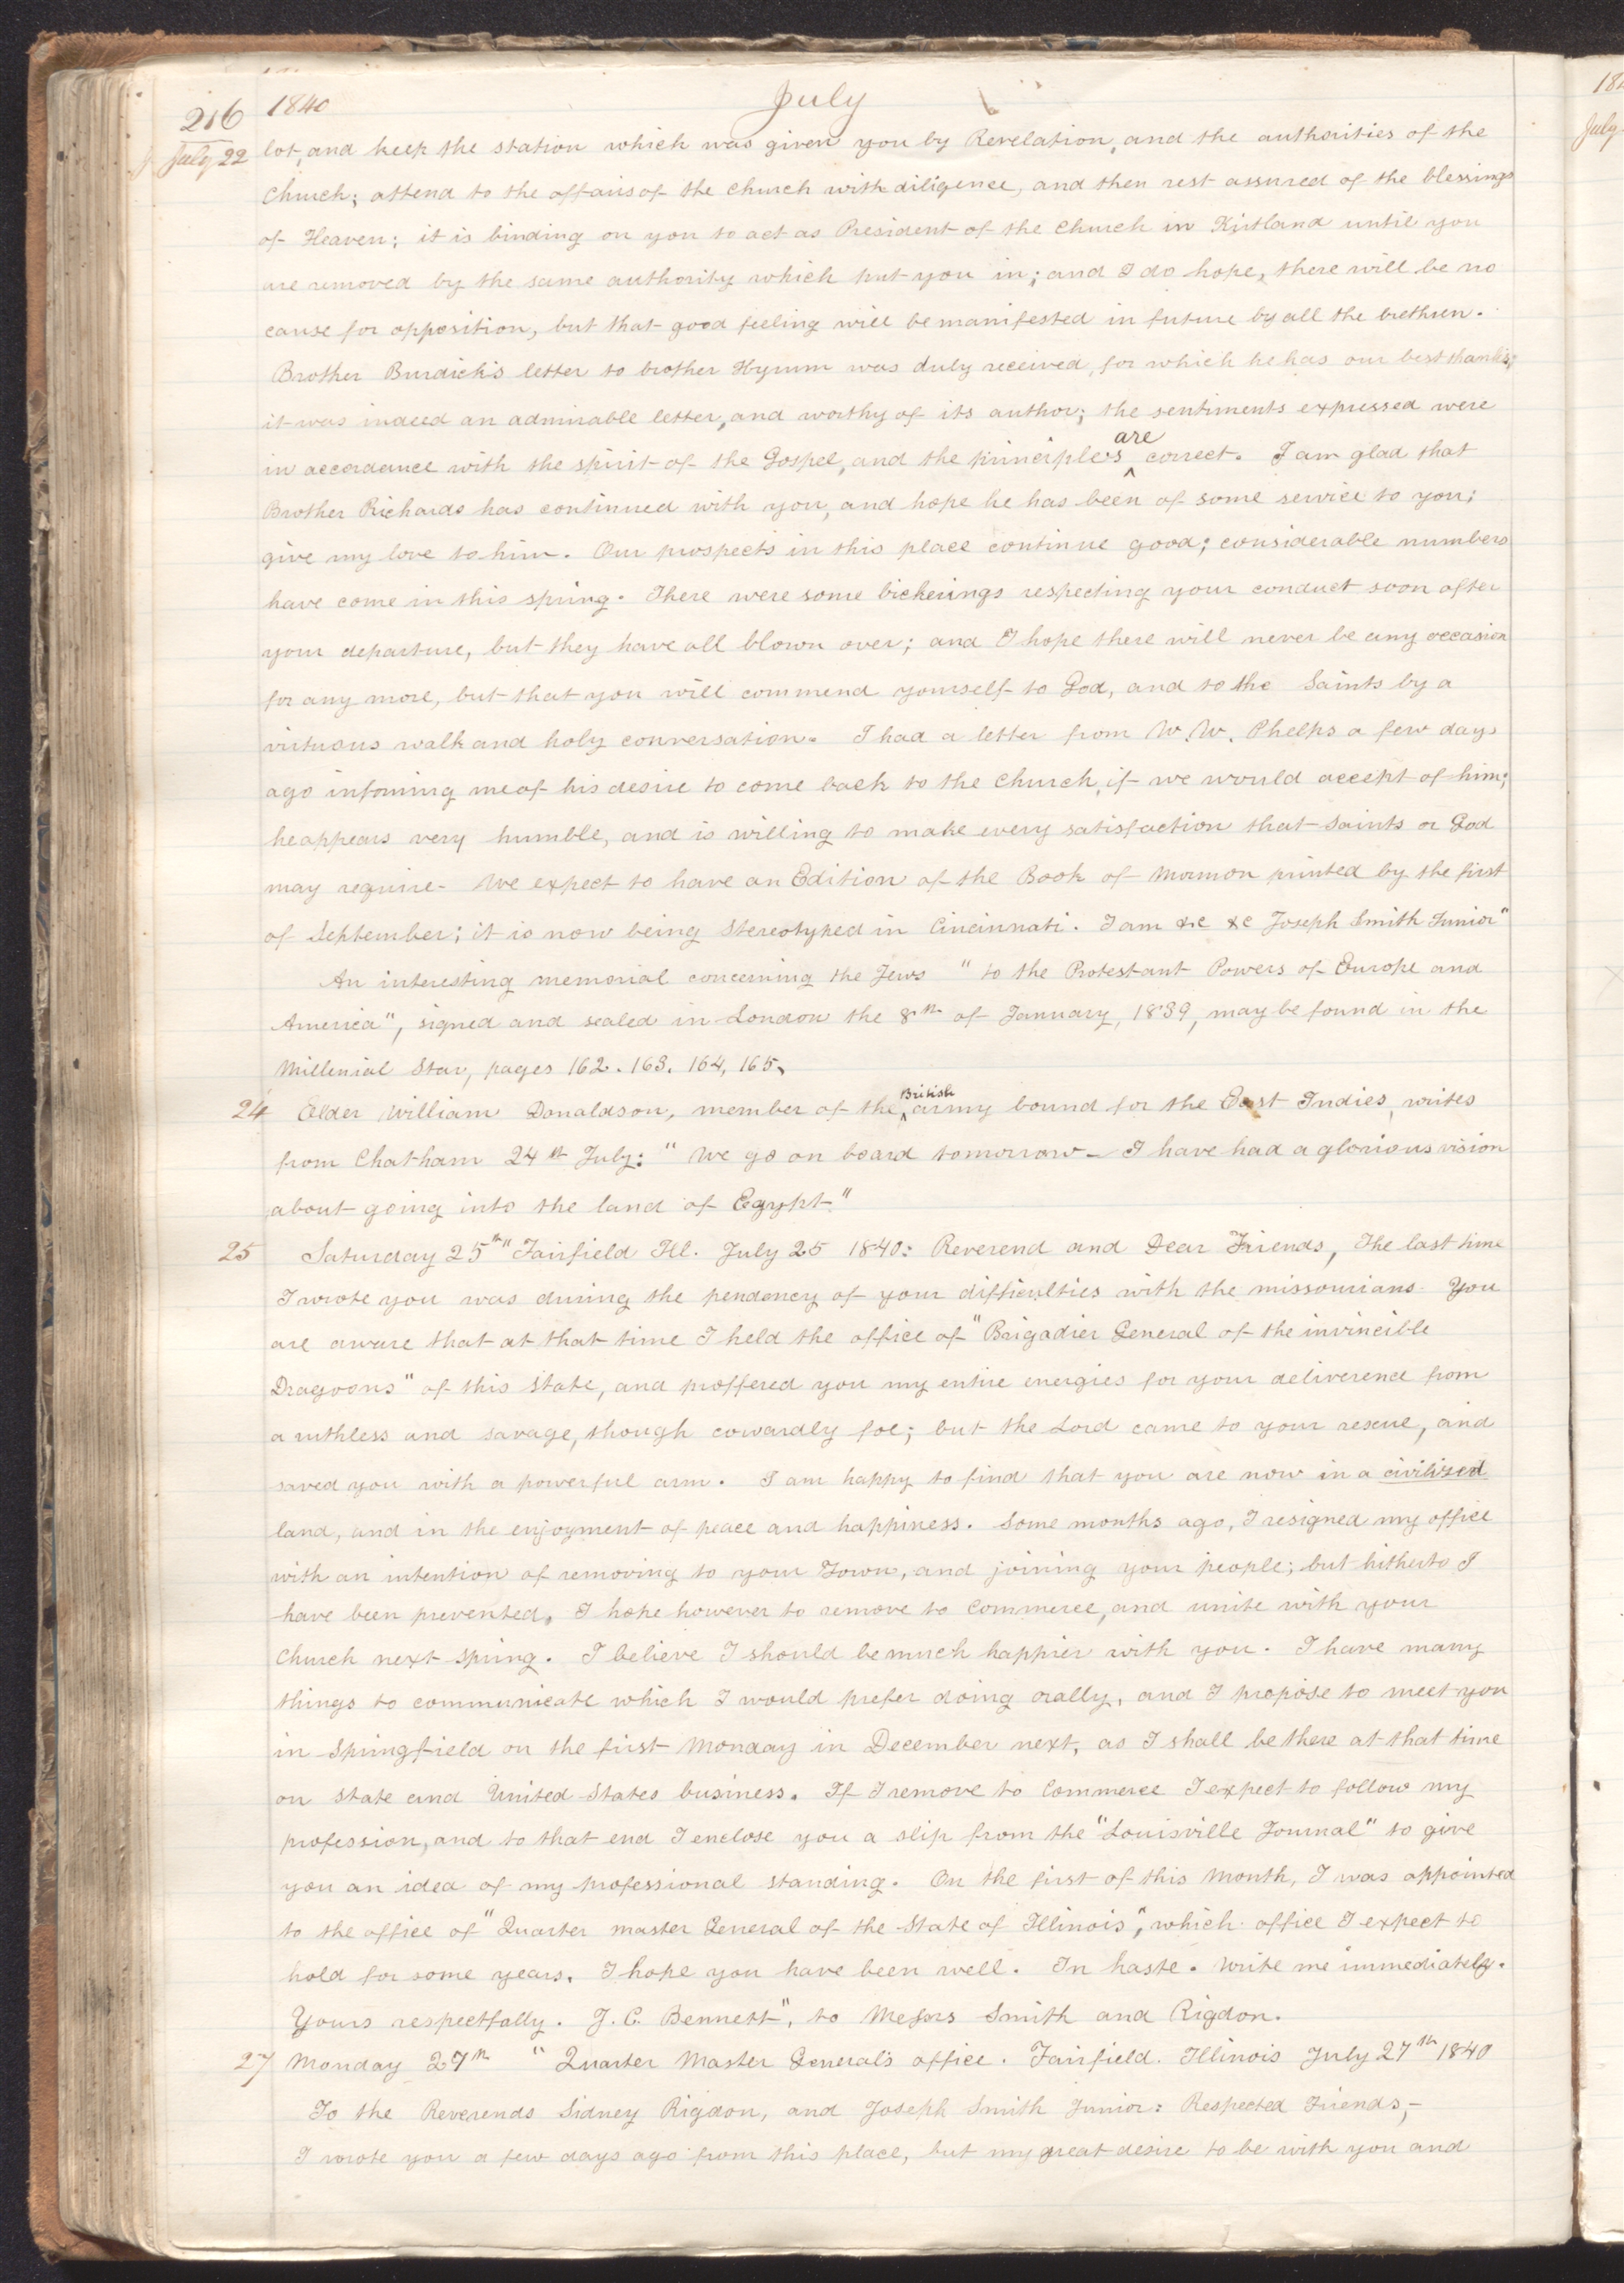 216 1840 July
July 22 lot, and keep the station which was given you by Revelation, and the authorities of the
Church; attend to the affairs of the Church with diligence, and then rest assured of the blessings
of Heaven; it is binding on you to act as President of the Church in Kirtland until you
are removed by the same authority which put you in; and I do hope, there will be no
cause for opposition, but that good feeling will be manifested in future by all the brethren.
Brother Burdick's letter to brother Hyrum was duly received, for which he has our best thanks;
it was indeed an admirable letter, and worthy of its author; the sentiments expressed were
in accordance with the spirit of the Gospel, and the principles are correct. I am glad that
Brother Richards has continued with you, and hope he has been of some service to you;
give my love to him. Our prospects in this place continue good; considerable numbers
have come in this spring. There were some bickerings respecting your conduct soon after
your departure, but they have all blown over; and I hope there will never be any occasion
for any more, but that you will commend yourself to God, and to the Saints by a
virtuous walk and holy conversation. I had a letter from W. W. Phelps a few days
ago informing me of his desire to come back to the Church, if we would accept of him;
he appears very humble, and is willing to make every satisfaction that Saints or God
may require- We expect to have an Edition of the Book of Mormon printed by the first
of September; it is now being Stereotyped in Cincinnati. I am &c &c Joseph Smith Junior"
An interesting memorial concerning the Jews "to the Protestant Powers of Europe and
America", signed and sealed in London the 8th of January, 1839, may be found in the
Millenial Star, pages 162. 163. 164, 165.
24 Elder William Donaldson, member of the British army bound for the East Indies, writes
from Chatham 24th July: "We go on board tomorrow- I have had a glorious vision
about going into the land of Egypt"
25 Saturday 25th "Fairfield Ill. July 25 1840: Reverend and Dear Friends, The last time
I wrote you was during the pendency of your difficulties with the missourians. You
are aware that at that time I held the office of "Brigadier General of the invincible
Dragoons" of this State, and proffered you my entire energies for your deliverence from
a ruthless and savage, though cowardly foe; but the Lord came to your rescue, and
saved you with a powerful arm. I am happy to find that you are now in a civilized
land, and in the enjoyment of peace and happiness. Some months ago, I resigned my office
with an intention of removing to your Town, and joining your people; but hitherto I
have been prevented. I hope however to remove to Commerce, and unite with your
Church next Spring. I believe I should be much happier with you. I have many
things to communicate which I would prefer doing orally, and I propose to meet you
in Springfield on the first Monday in December next, as I shall be there at that time
on State and United States business. If I remove to Commerce I expect to follow my
profession, and to that end I enclose you a slip from the "Louisville Journal" to give
you an idea of my professional standing. On the first of this Month, I was appointed
to the office of "Quarter master General of the State of Illinois", which office I expect to
hold for some years. I hope you have been well. In haste. Write me immediately.
Yours respectfully. J. C. Bennett", to Messrs Smith and Rigdon.
27 Monday 27th "Quarter Master General's office. Fairfield. Illinois July 27th 1840
To the Reverends Sidney Rigdon, and Joseph Smith Junior: Respected Friends,-
I wrote you a few days ago from this place, but my great desire to be with you and